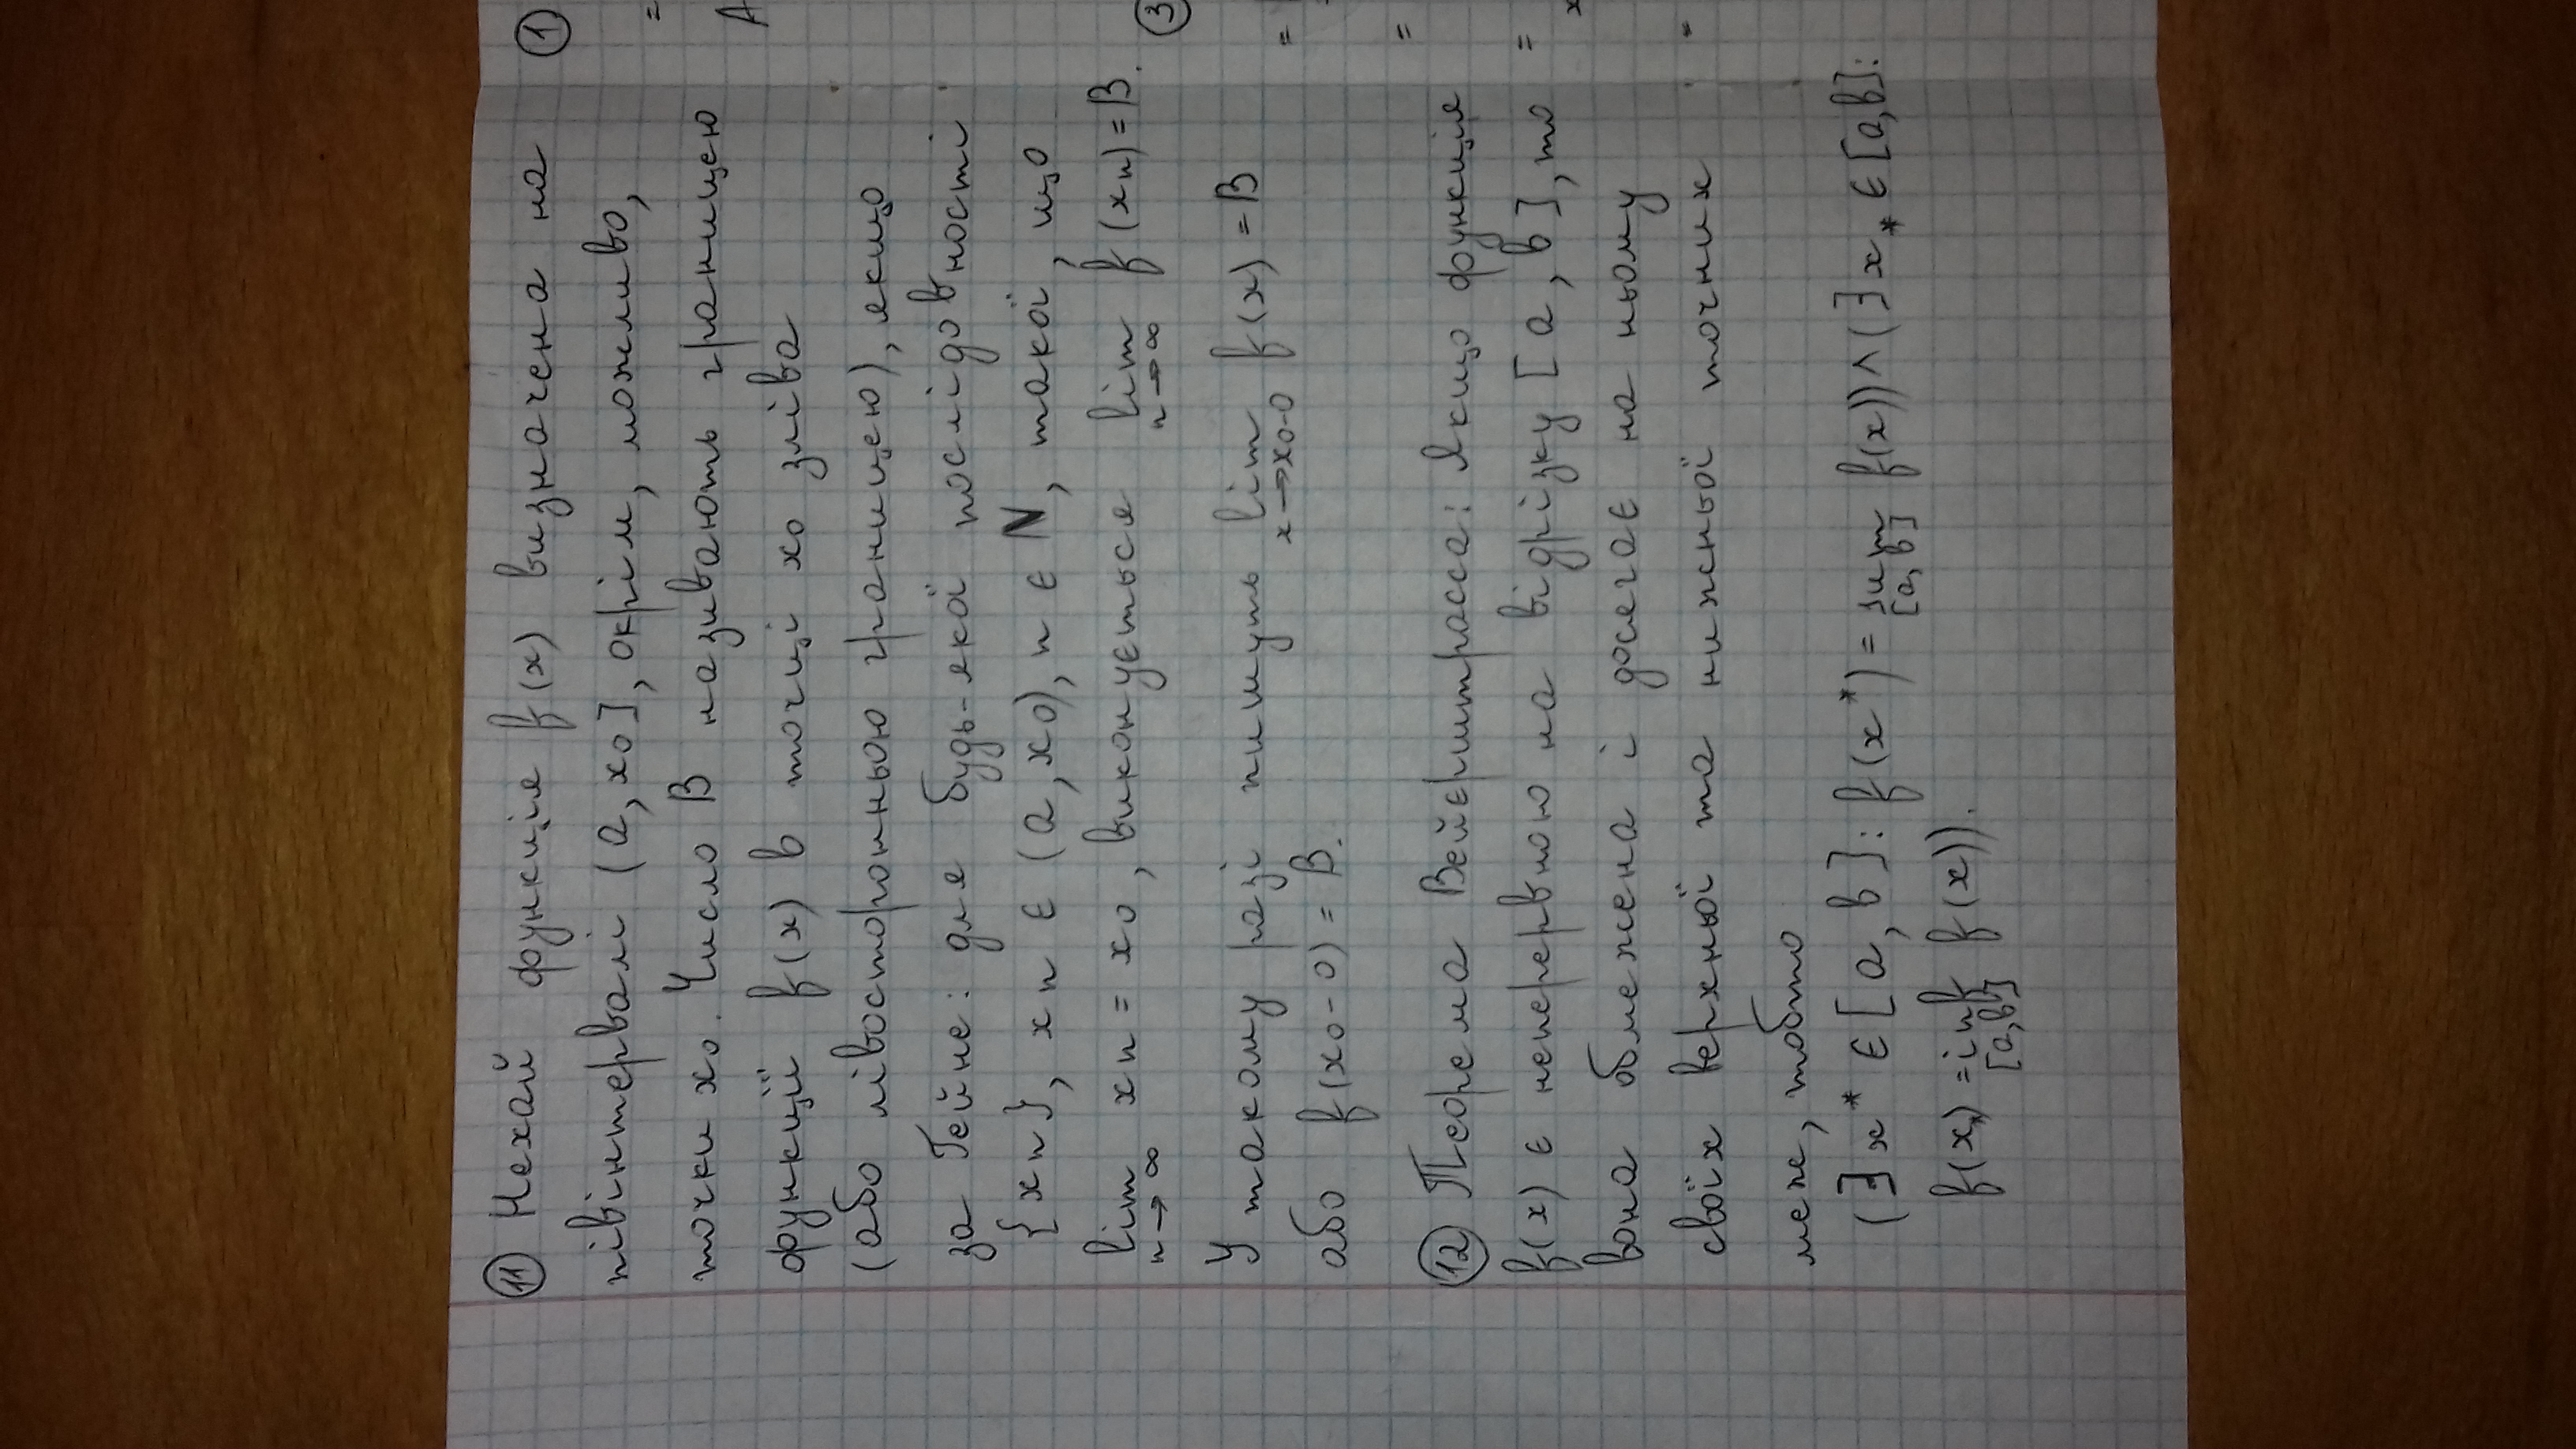 11 Нехай функція f(x) визначена на
півінтервалі (a, x0], окрім, можливо,
точки x0. Число B називають границею
функції f(x) в точці x0 зліва
(або лівосторонньою границею), якщо
за Гейне: для будь-якої послідовності
{xn}, xn ∈ (a, x0), n ∈ N, такої, що
lim xn = x0, виконується lim f(xn) = B.
n→∞ n→∞
У такому разі пишуть lim f(x) = B
x→x0-0
або f(x0-0) = B.
12 Теорема Вейєрштрасса: Якщо функція
f(x) є неперервною на відрізку [a, b], то
вона обмежена і досягає на ньому
своїх верхньої та нижньої точних
меж, тобто
(∃x* ∈ [a, b]: f(x*) = f(x)) ∧ (∃x* ∈ [a,b]:
[a, b]
f(x*) = inf f(x)).
[a,b]
1
=
A
3
=
=
=
x
=